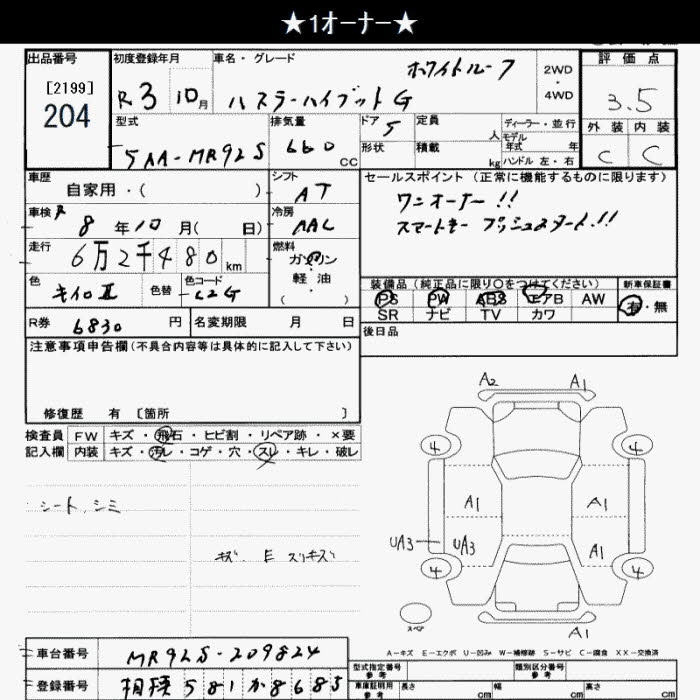 ★1オーナー★
出品番号
[2199]
204
初度登録年月
R3 10月
車名・グレード
ホワイトルーフ
ハスラーハイブリットG
2WD
・
4WD
評価点
3.5
外装 内装
C C
型式
5AA-MR92S
排気量
660 cc
ドア 5
定員 人
形状
積載 kg
ディーラー・並行
モデル年式 年
ハンドル 左・右
車歴
自家用・( )
シフト
AT
車検 R8年10月( 日)
冷房
AAC
走行
6万2千480km
燃料
ガソリン
軽・油
( )
色
キイロⅡ
色替
色コード
C2G
R券 6830円
名変期限 月 日
セールスポイント(正常に機能するものに限ります)
ワンオーナー!!
スマートキー プッシュスタート!!
装備品(純正品に限り○をつけてください)
新車保証書
PS PW ABS エアB AW
SR ナビ TV カワ
有・無
後日品
注意事項申告欄(不具合内容等は具体的に記入して下さい)
修復歴 有 [箇所 ]
検査員 FW キズ・飛石・ヒビ割・リペア跡・×要
記入欄 内装 キズ・汚レ・コゲ・穴・スレ・キレ・破レ
シート、シミ
キズ E スリキズ
A2 A1
4 4
A1 A1
UA3 UA3 A1
4 4
スペア
A1
A-キズ E-エクボ U-凹み W-補修跡 S-サビ C-腐食 XX-交換済
車台番号 MR92S-209824
登録番号 相模581か8685
型式指定番号 参考
類別区分番号 参考
車庫証明用 参考 長さ cm 幅 cm 高さ cm